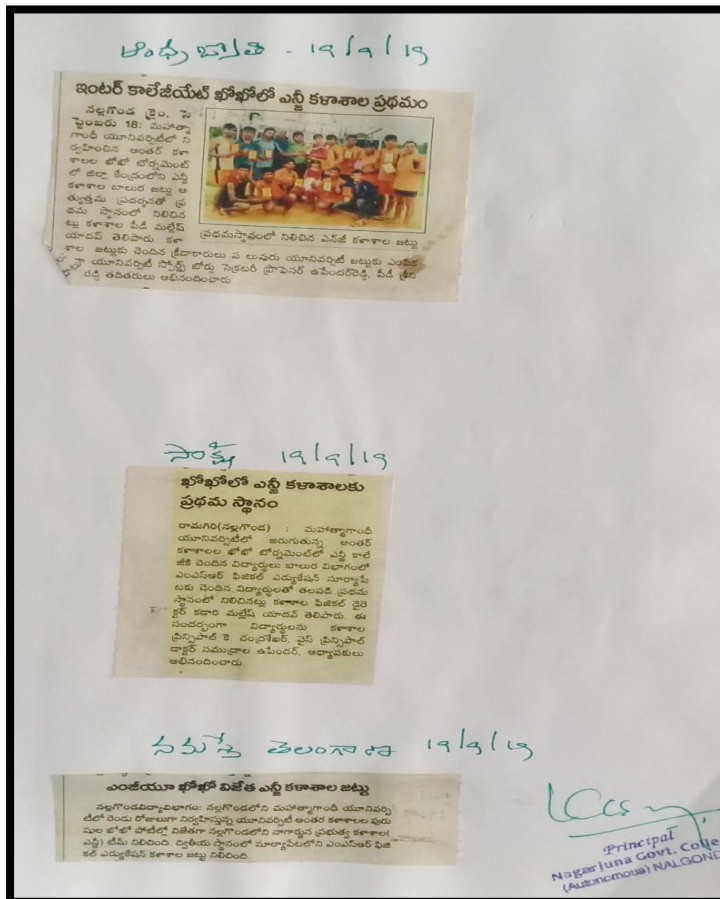 ఆంధ్ర జ్యోతి - 19/9/19
ఇంటర్ కాలేజీయేట్ ఖోఖోలో ఎన్జీ కళాశాల ప్రథమం
నల్లగొండ క్రైం, సె
ప్టెంబరు 18: మహాత్మా
గాంధీ యూనివర్సిటీలో ని
ర్వహించిన అంతర్ కళా
శాలల ఖోఖో టోర్నమెంట్
లో జిల్లా కేంద్రంలోని ఎన్జీ
కళాశాల బాలుర జట్టు అ
త్యుత్తమ ప్రదర్శనతో ప్ర
థమ స్థానంలో నిలిచిన
ట్లు కళాశాల పీడీ మల్లేష్
యాదవ్ తెలిపారు. కళా
ప్రథమస్థానంలో నిలిచిన ఎన్‌జీ కళాశాల జట్టు
శాల జట్టుకు చెందిన క్రీడాకారులు ప లువురు యూనివర్సిటీ జట్టుకు ఎంపిక
యూనివర్సిటీ స్పోర్ట్స్ బోర్డు సెక్రటరీ ప్రొఫెసర్ ఉపేందర్‌రెడ్డి, పీడీ శ్రీని
రెడ్డి తదితరులు అభినందించారు.
సాక్షి 19/9/19
ఖోఖోలో ఎన్జీ కళాశాలకు
ప్రథమ స్థానం
రామగిరి(నల్లగొండ) : మహాత్మాగాంధీ
యూనివర్సిటీలో జరుగుతున్న అంతర్
కళాశాలల ఖోఖో టోర్నమెంట్‌లో ఎన్జీ కాలే
జీకి చెందిన విద్యార్థులు బాలుర విభాగంలో
ఎంఎస్ఆర్ ఫిజికల్ ఎడ్యుకేషన్ సూర్యాపే
టకు చెందిన విద్యార్థులతో తలపడి ప్రథమ
స్థానంలో నిలిచినట్లు కళాశాల ఫిజికల్ డైరె
క్టర్ కడారి మల్లేష్ యాదవ్ తెలిపారు. ఈ
సందర్భంగా విద్యార్థులను కళాశాల
ప్రిన్సిపాల్ కె. చంద్రశేఖర్, వైస్ ప్రిన్సిపాల్
డాక్టర్ సముద్రాల ఉపేందర్, అధ్యాపకులు
అభినందించారు.
నమస్తే తెలంగాణ 19/9/19
ఎంజీయూ ఖోఖో విజేత ఎన్జీ కళాశాల జట్టు
నల్లగొండవిద్యావిభాగం: నల్లగొండలోని మహాత్మాగాంధీ యూనివర్సి
టీలో రెండు రోజులుగా నిర్వహిస్తున్న యూనివర్సిటీ అంతర కళాశాలల పురు
షుల ఖోఖో పోటీల్లో విజేతగా నల్లగొండలోని నాగార్జున ప్రభుత్వ కళాశాల(
ఎన్జీ) టీమ్ నిలిచింది. ద్వితీయ స్థానంలో సూర్యాపేటలోని ఎంఎస్ఆర్ ఫిజి
కల్ ఎడ్యుకేషన్ కళాశాల జట్టు నిలిచింది.
Principal
Nagarjuna Govt. Colle
(Autonomous) NALGOND